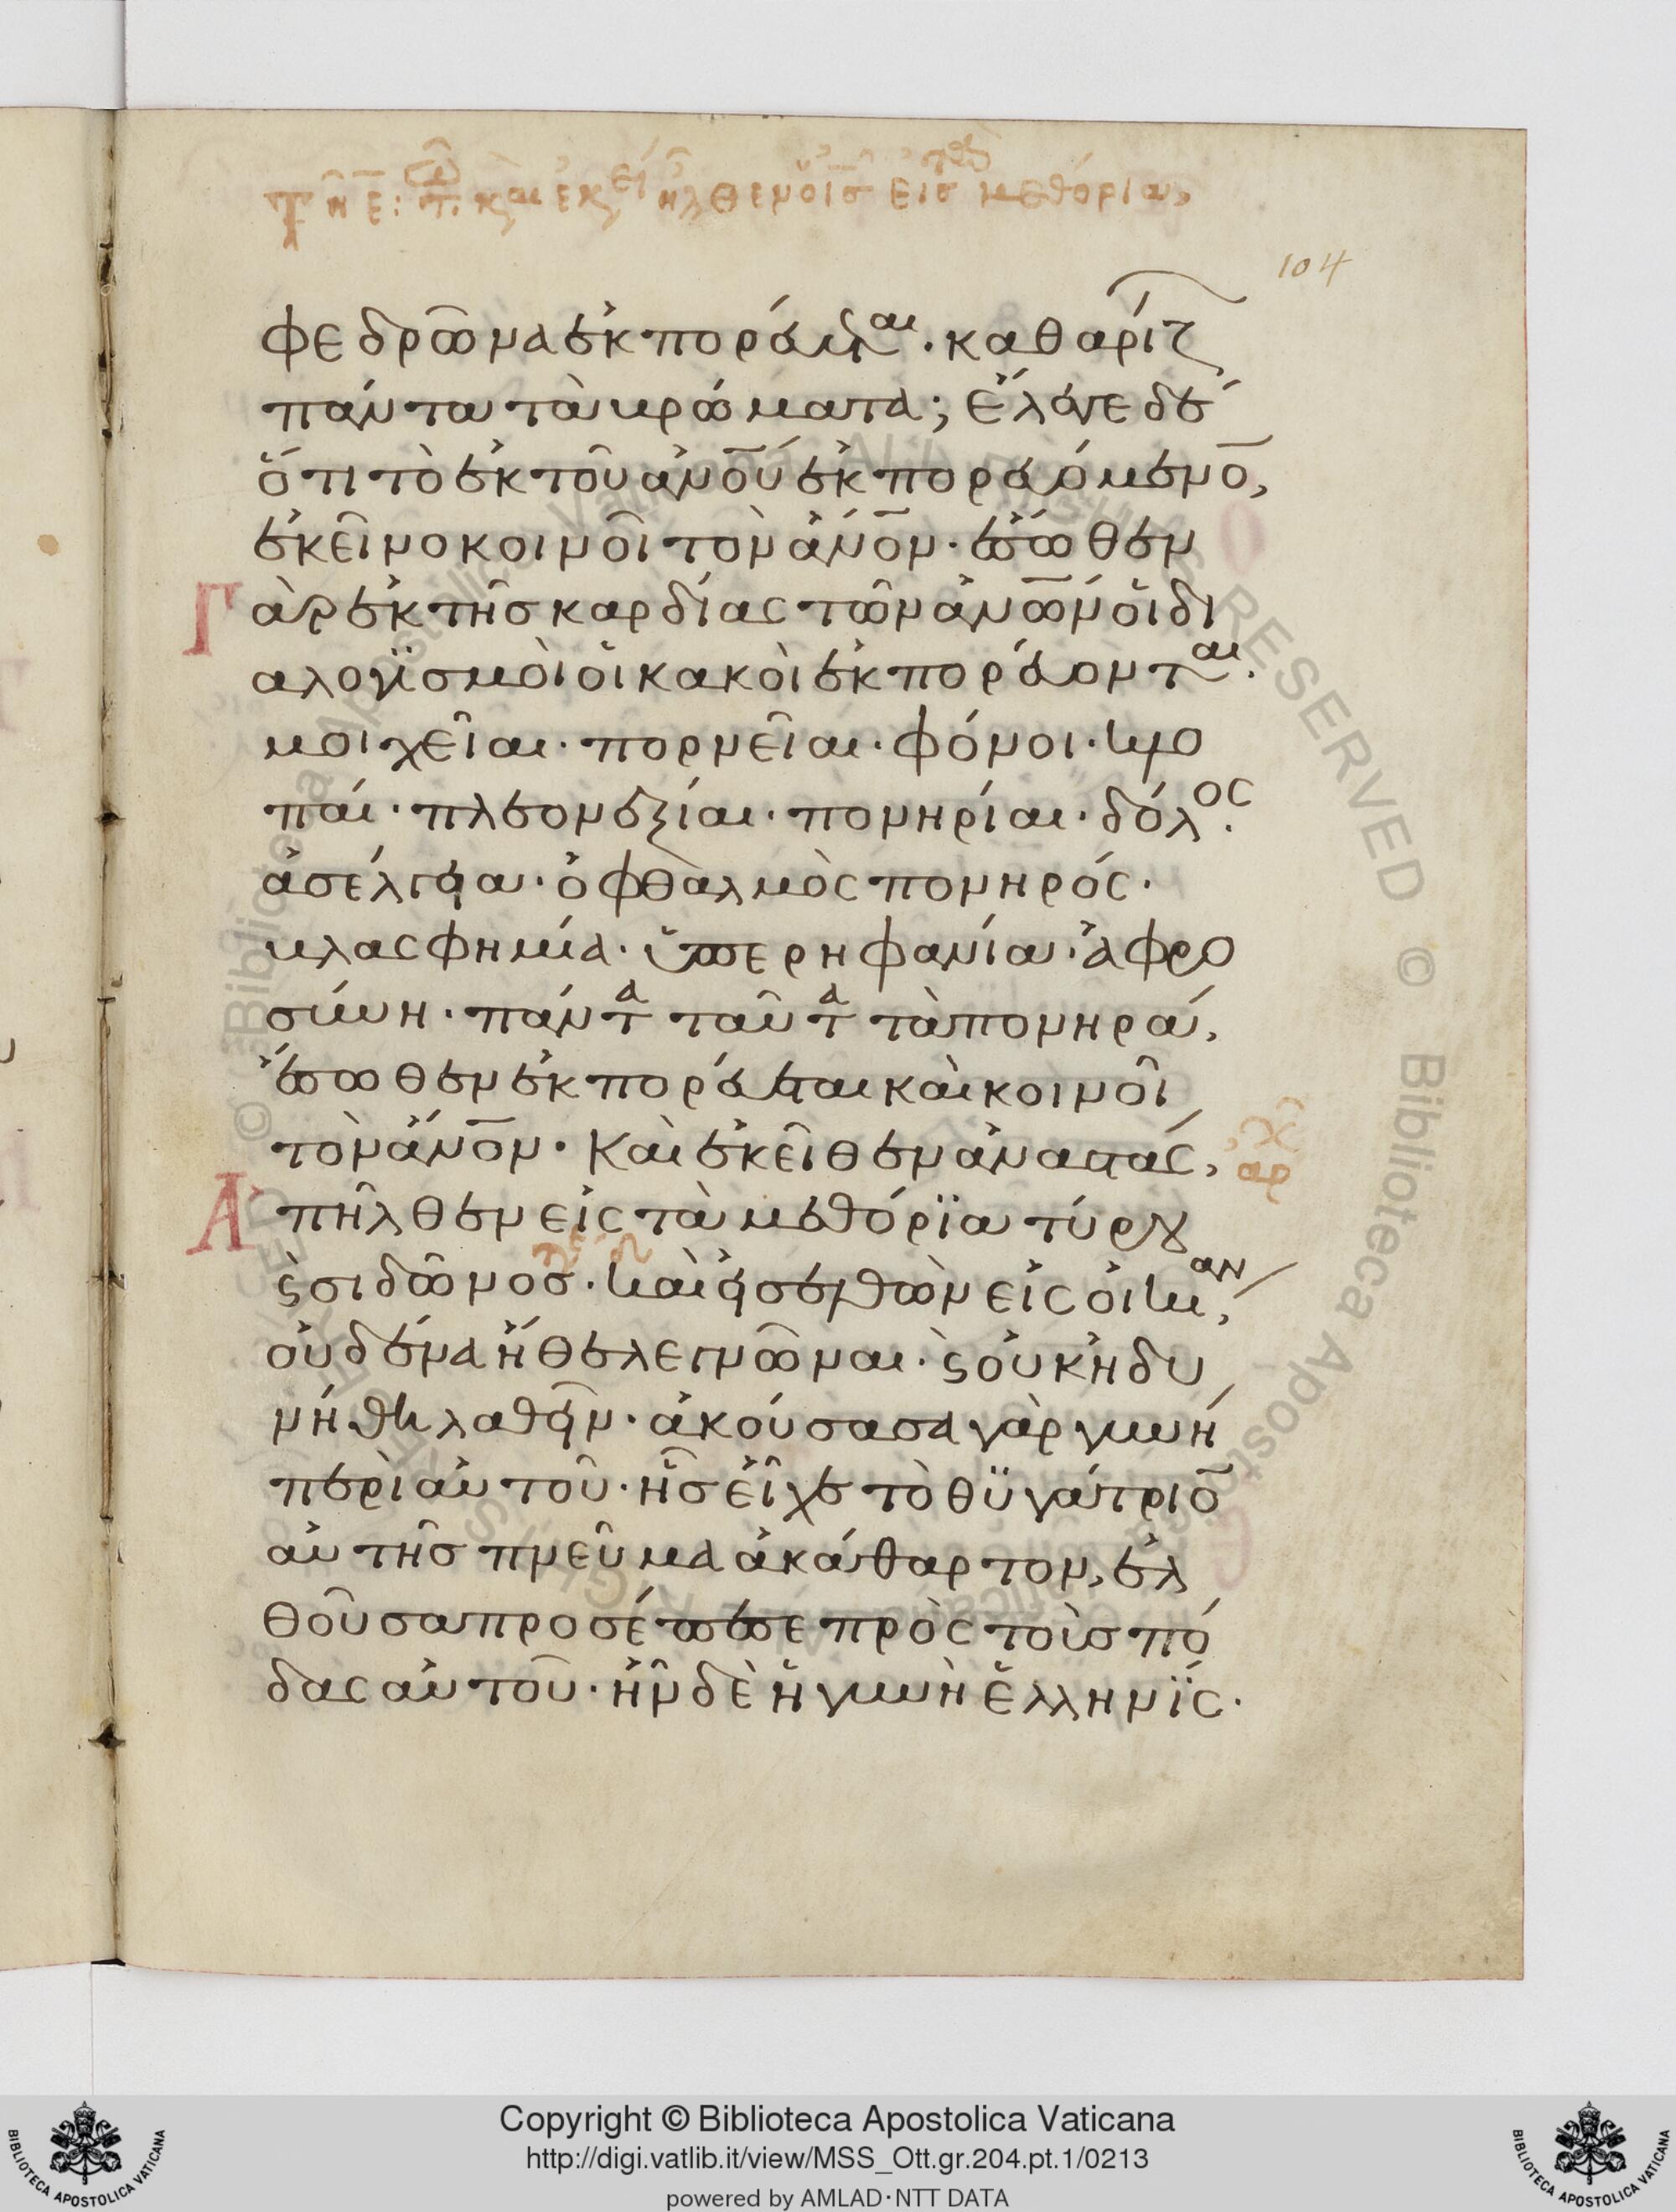 104
φεδρῶνα ἐκπορεύεται. καθαρίζ
πάντα τὰ βρώματα; ἔλεγε δέ
ὅτι τὸ ἐκ τοῦ ἀνού ἐκπορευόμενο̅,
ἐκεῖνο κοινοῖ τὸν ἄνον. ἔσωθεν
Γὰρ ἐκ τῆς καρδίας τῶν ἀνων οἱ δι
αλογϊσμοὶ οἱ κακοὶ ἐκπορεύονται.
μοιχεῖαι. πορνεῖαι. φόνοι. κλο
παί. πλεονεξίαι. πονηρίαι. δόλος.
ἀσέλγεια. ὀφθαλμὸς πονηρός.
βλασφημία. ὑπερηφανία. ἀφρο
σύνη. πάντα ταῦτα τὰ πονηρά,
ἔσωθεν ἐκπορεύεται καὶ κοινοῖ
τὸν ἄνον. Καὶ ἐκεῖθεν ἀναστάς,
Ἀπῆλθεν εἰς τὰ μεθόρϊα τύρου
ϛ σιδῶνος. καὶ εἰσελθὼν εἰς οἰκίαν,
οὐδένα ἤθελε γνῶναι. ϛ οὐκ ἠδυ
νήθη λαθεῖν. ἀκούσασα γὰρ γυνή
περὶ αὐτοῦ. ἧς εἶχε τὸ θϋγάτριο̅
αὐτῆς πνεῦμα ἀκάθαρτον, ἐλ
θοῦσα προσέπεσε πρὸς τοὺς πό
δας αὐτοῦ. ἦν δὲ ἡ γυνὴ ἑλληνϊς.
Copyright © Biblioteca Apostolica Vaticana
http://digi.vatlib.it/view/MSS_Ott.gr.204.pt.1/0213
powered by AMLAD·NTT DATA
BIBLIOTECA APOSTOLICA VATICANA
BIBLIOTECA APOSTOLICA VATICANA